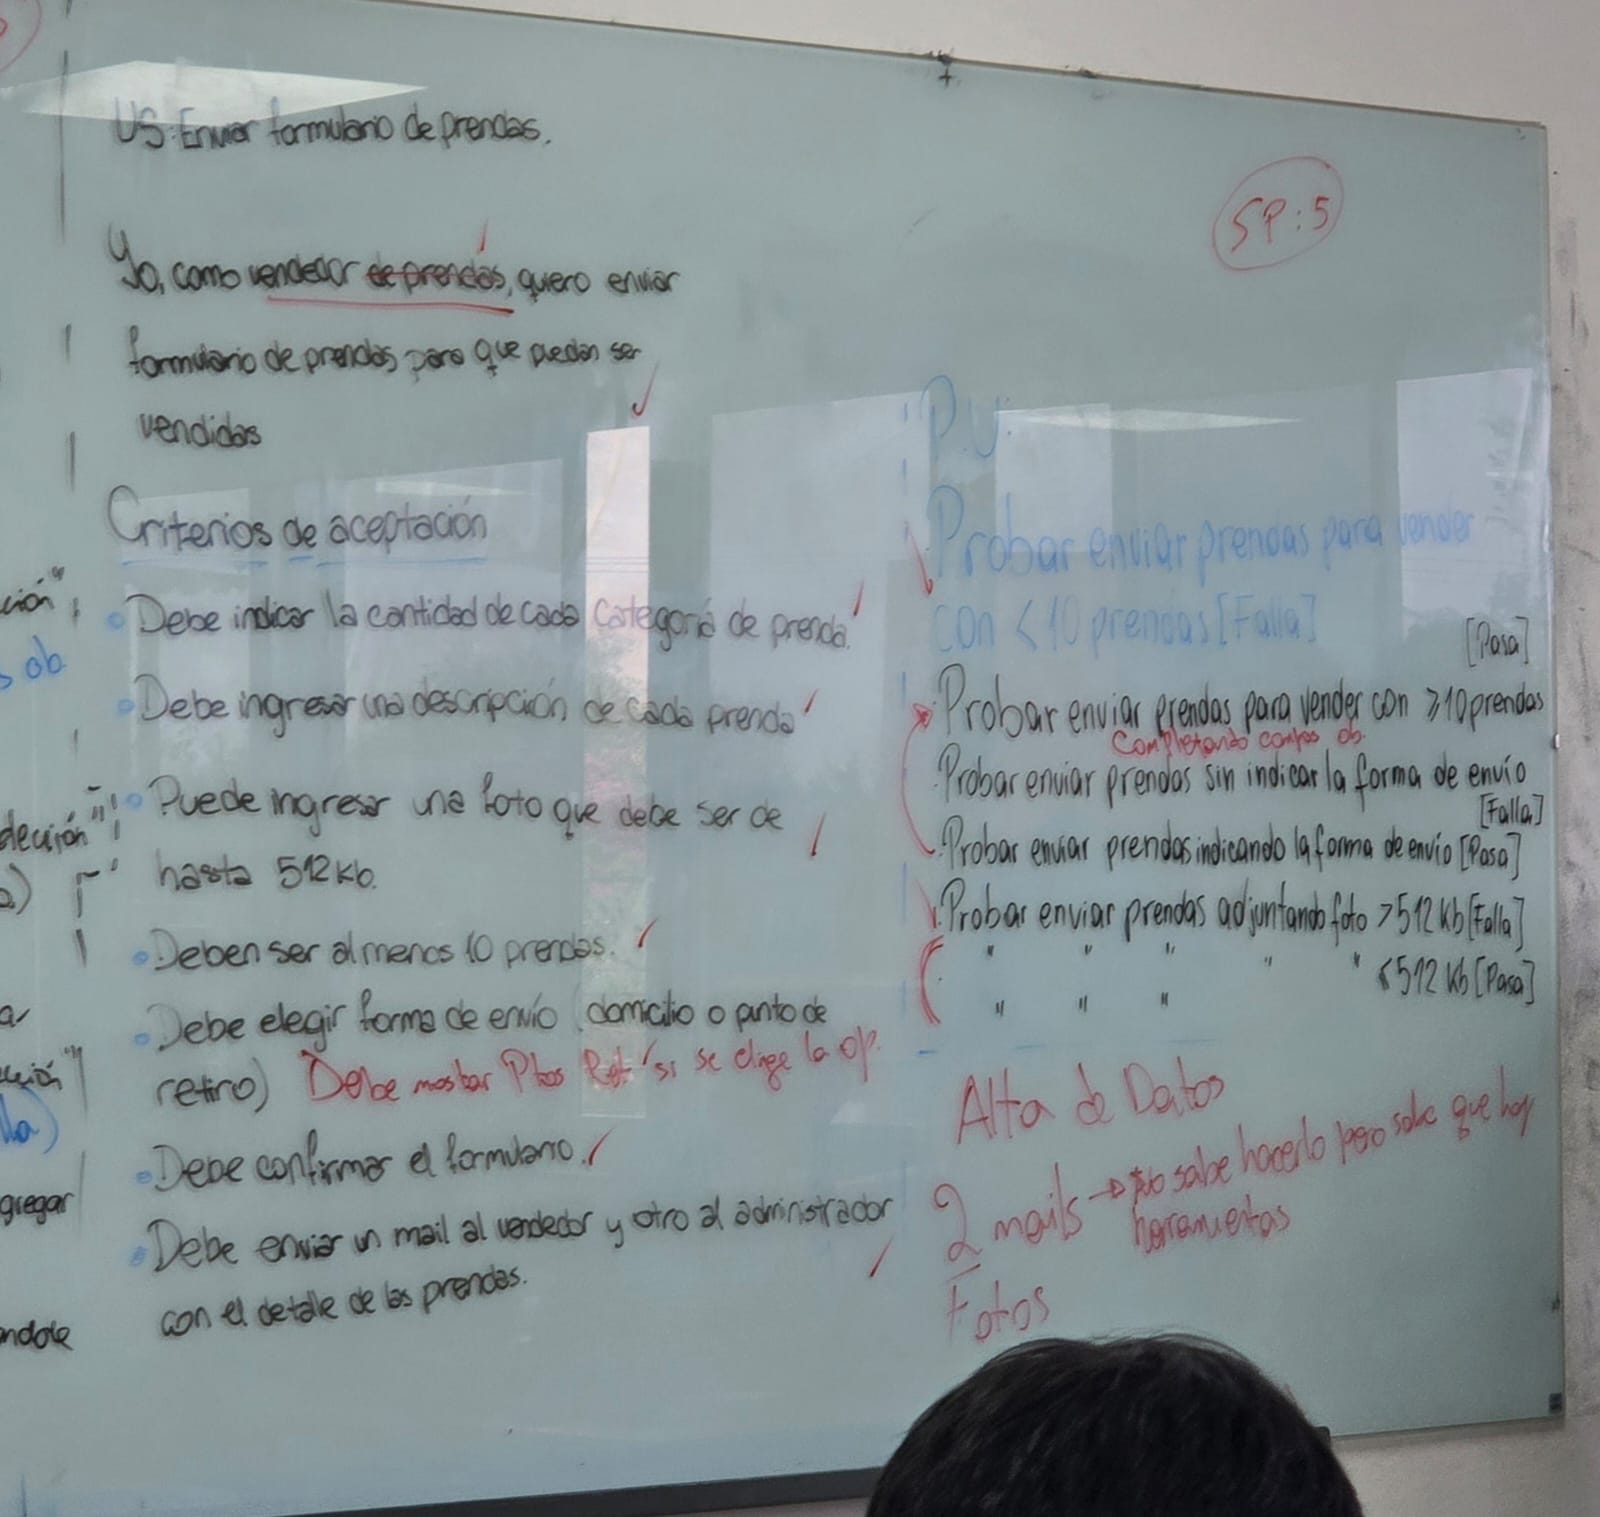 US: Enviar formulario de prendas.
SP: 5
Yo, como vendedor de prendas, quiero enviar
formulario de prendas para que puedan ser
vendidas
Criterios de aceptación
Debe indicar la cantidad de cada categoría de prenda.
Debe ingresar una descripción de cada prenda
Puede ingresar una foto que debe ser de
hasta 512 kb.
Deben ser al menos 10 prendas.
Debe elegir forma de envío (domicilio o punto de
retiro) Debe mostrar Ptos Ret si se elige la op.
Debe confirmar el formulario.
Debe enviar un mail al vendedor y otro al administrador
con el detalle de las prendas.
P.U:
Probar enviar prendas para vender
con < 10 prendas [Falla]
[Pasa]
Probar enviar prendas para vender con ≥ 10 prendas
Completando campos ob.
Probar enviar prendas sin indicar la forma de envío
[Falla]
Probar enviar prendas indicando la forma de envío [Pasa]
Probar enviar prendas adjuntando foto > 512 kb [Falla]
" " " " " ≤ 512 kb [Pasa]
" " "
Alta de Datos
2 mails → no sabe hacerlo pero sabe que hay
herramientas
Fotos
ción"
s ob
a)
gregar
ndole